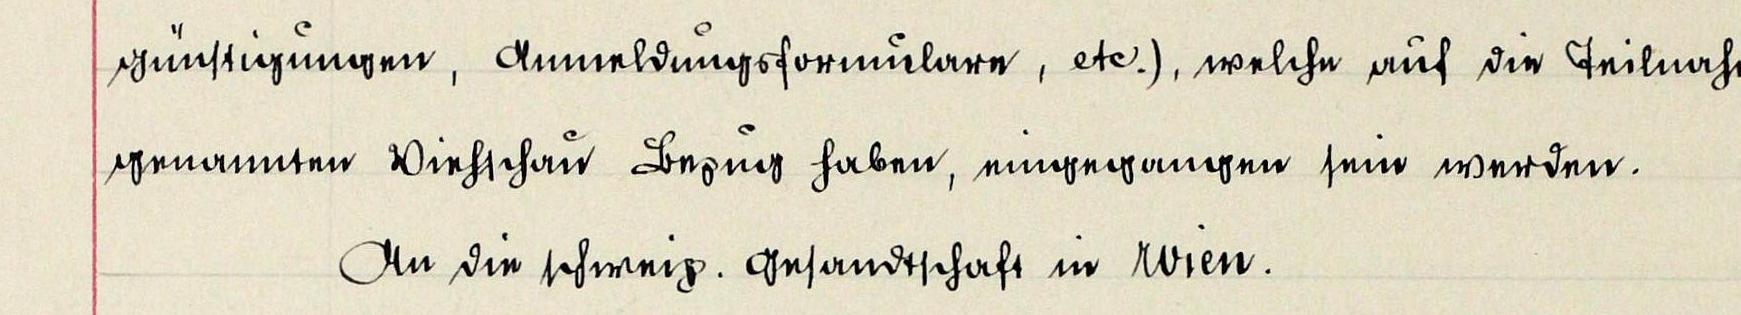 günstigungen, Anmeldungsformulare, etc.), welche auf die Teilnah
genannten Viehschau Bezug haben, eingegangen sein werden.
An die schweiz. Gesandtschaft in Wien.